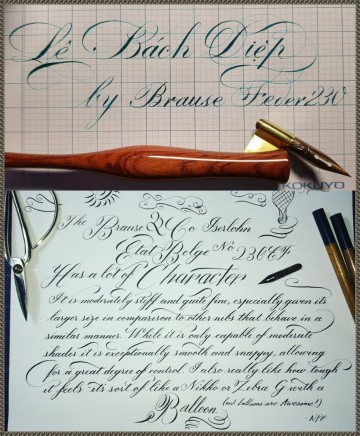 Lê Bách Diệp
by Brause Feder 230
KOKUYO
The Brause & Co Iserlohn
Etat Belge No 230EF
Has a lot of Character
It is moderately stiff and quite fine, especially given its
larger size in comparison to other nibs that behave in a
similar manner. While it is only capable of moderate
shades it is exceptionally smooth and snappy, allowing
for a great degree of control. I also really like how tough
it feels - its sort of like a Nikko or Zebra G with a
Balloon. (and balloons are Awesome!)